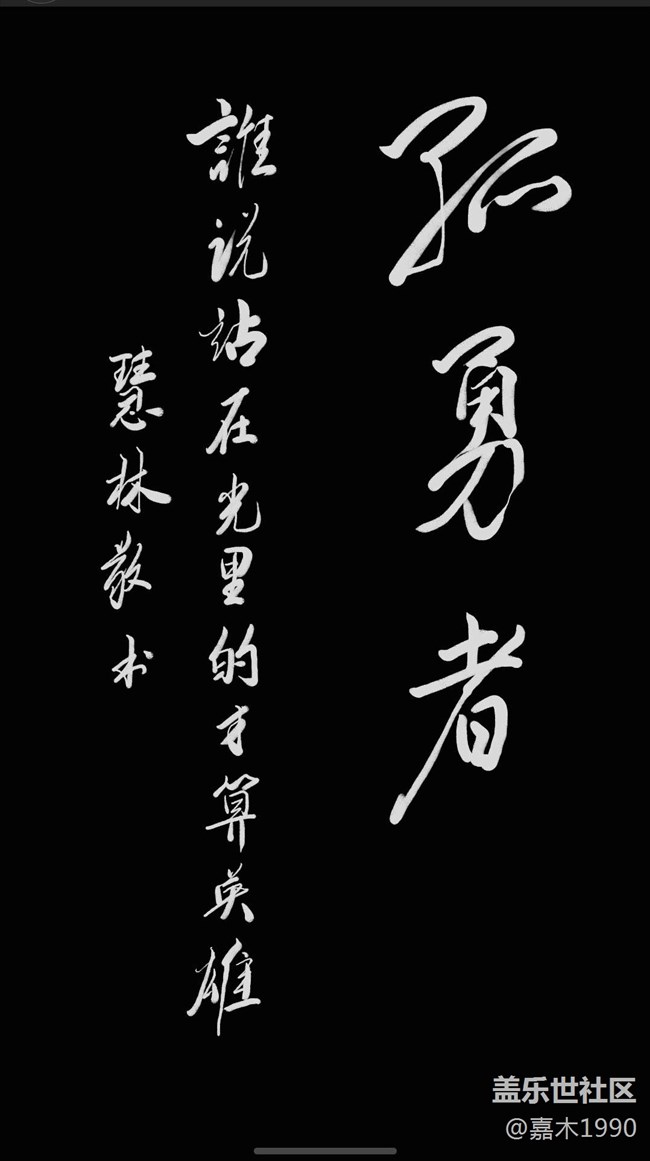 孤勇者
誰说站在光里的才算英雄
慧林敬书
盖乐世社区
@嘉木1990